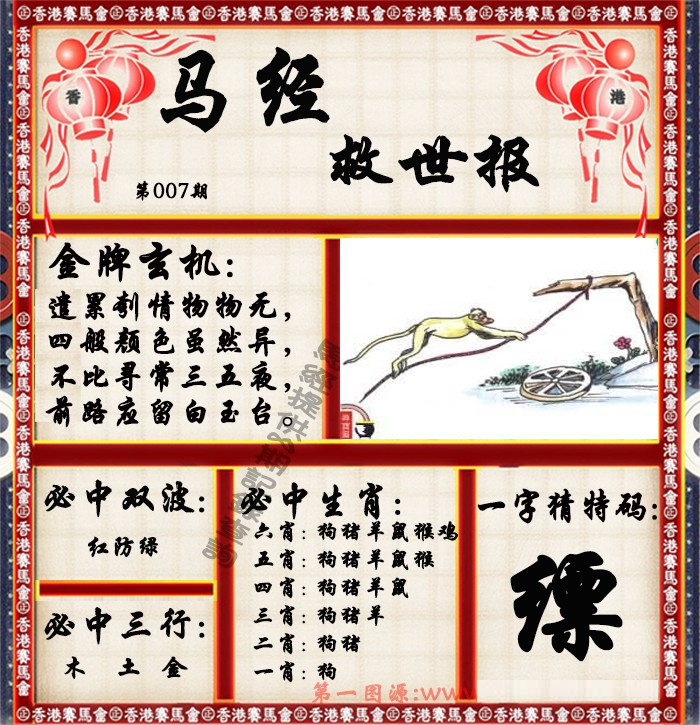 香港賽馬會
香
港
马经
救世报
第007期
金牌玄机:
遣累剗情物物无,
四般颜色虽然异,
不比寻常三五夜,
前路应留白玉台。
必中双波:
红防绿
必中三行:
木 土 金
必中生肖:
六肖:狗猪羊鼠猴鸡
五肖:狗猪羊鼠猴
四肖:狗猪羊鼠
三肖:狗猪羊
二肖:狗猪
一肖:狗
一字猜特码:
缥
第一图源:www